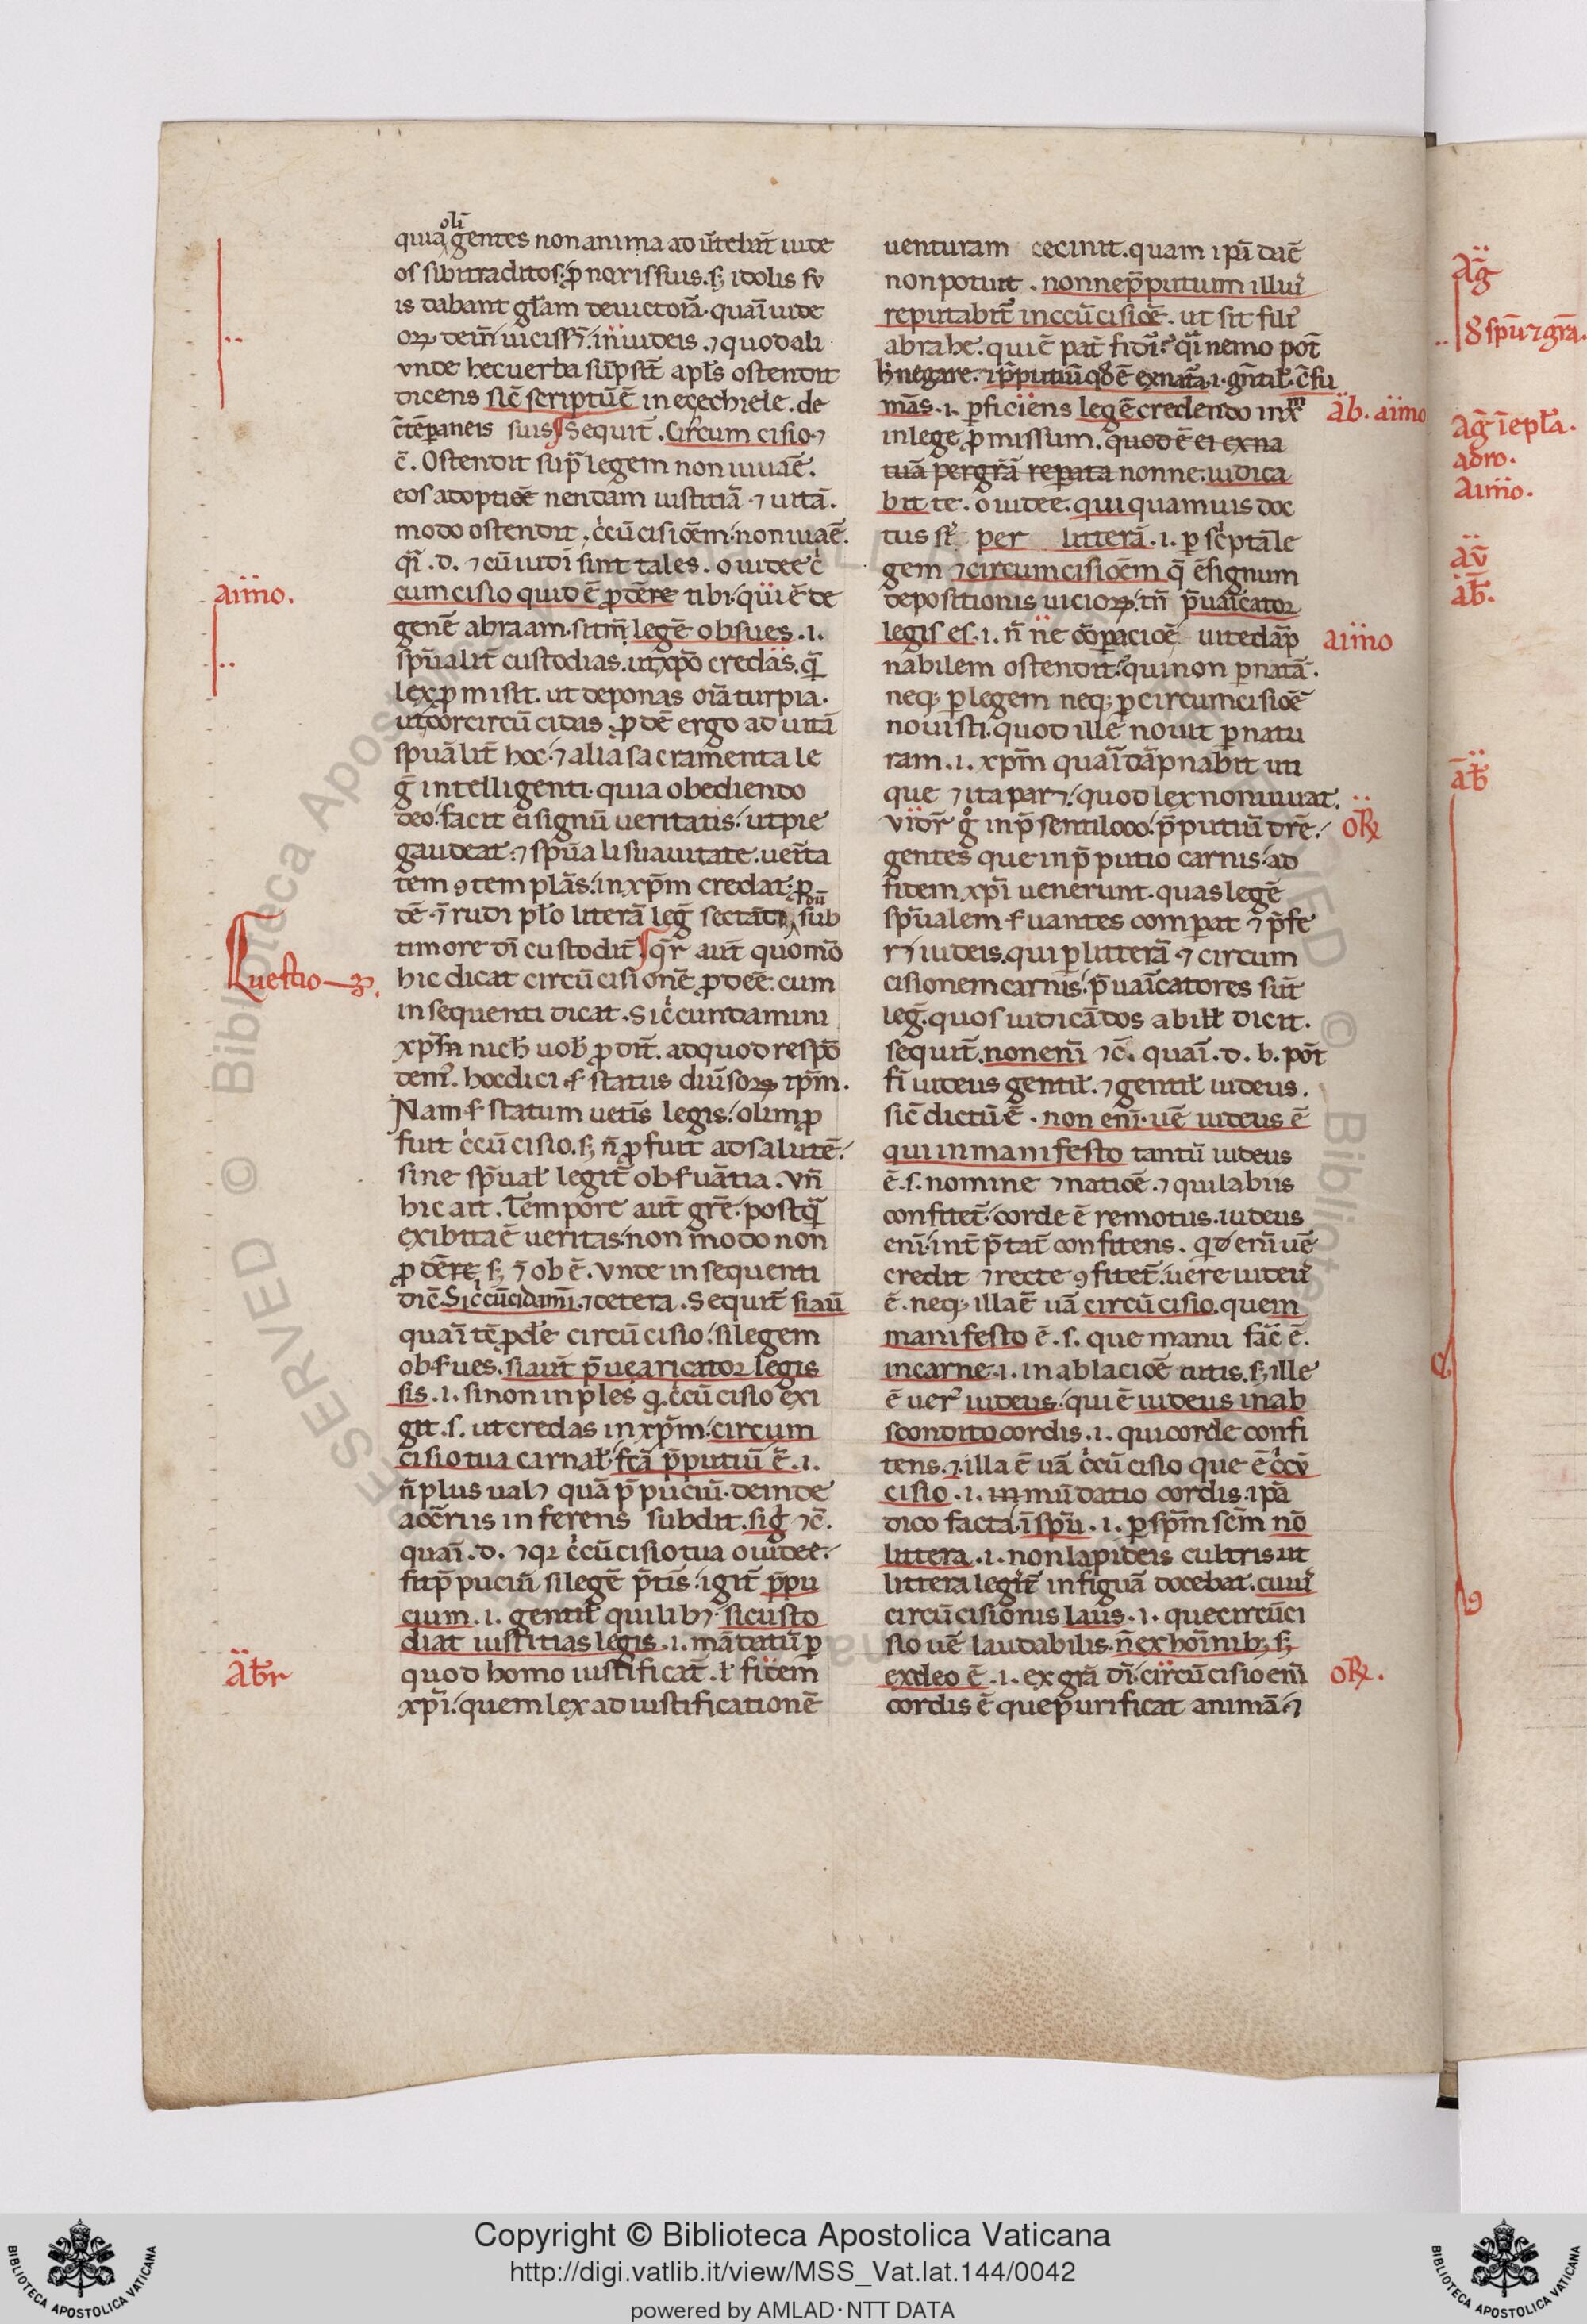 olī
quia gentes non anima aduertebāt iude
os sibi traditos. p̄ noxis suis. sꝫ idolis su
is dabant gl̄am deuictorā. quaī iude
oꝝ deiñ uicissī. in iudeis. ⁊ quod ali
vnde hec uerba sūpsit̄ apl̄s ostendit
dicens sic̄ scriptū ē in eçechiele. de
suis sequit̄. Circum cisio. ⁊
c̄. Ostendit sup̄ legem non iuuāē.
eos adoptioē nendam iustitiā ⁊ uitā.
modo ostendit. c̓cūcisioēm. non iuuāē.
qͣī .d. ⁊ cū iudī sint tales. o iudee c̓
cumcisio quid ē p̄dēre tibi. qui ē de
genē abraam. sitm̄ legē obsues .i.
sp̄ualit̄ custodias. ut xp̄o credas. q̄
lex p̄misit. ut deponas oīa turpia.
ut cor circūcidas. p̄dē ergo ad uitā
spuālit̄ hoc. ⁊ alia sacramenta le
ḡ intelligenti. quia obediendo
deo. facit ei signū ueritatis. ut pie
gaudeat. ⁊ sp̄uali suauitate. uer̄ta
tem ɔtemplās. in xp̄m credat. p
dē. ⁊ rudi pl̄o literā leḡ sectāti dū sub
timore dī custodit̄ q̄r aut̄ quom̄o
hic dicat circūcisionē p̄deē. cum
in sequenti dicat. Si c̓cundamini
xp̄m nich̄ uob̄ p̄dit̄. ad quod respō
dem̄. hoc dici .s. status diuīsoꝝ ip̄m.
Nam .s. statum uet̄is legis. olim p̄
fuit c̓cūcisio. sꝫ n̄ p̄fuit ad salutē.
sine sp̄ual̄ legit̄ obsuātia. Vn̄
hic ait. Tempore aut̄ gr̄e. postq̄
exibita ē ueritas. non modo non
p̄dēre, sꝫ ⁊ ob ē. Vnde in sequenti
dic̄. Si c̓cūcidamī. ⁊ cetera. Sequit̄ si aū
quaī tē p̄de circūcisio. si legem
obsues. si aut̄ p̄uaricator legis
sis .i. si non inples q̄. c̓cūcisio exi
git .s. ut credas in xp̄m. circum
cisio tua carnal̄. fc̄ā p̄putiū ē .i.
n̄ plus ualꝫ quā p̄puciū. deinde
acc̄rius inferens subdit. siḡ ⁊c̄.
quaī .d. ⁊ qꝛ c̓cūcisio tua o iudee.
fit p̄puciū si legē p̄tīs. igit̄ p̄pu
cium .i. gentil̄ quilibꝫ. si custo
diat iustitias legis .i. mādatū p
quod homo iustificat̄. l̄ fidem
xp̄i. quem lex ad iustificationē
uenturam cecinit. quam ipā dāē
non potuit. nonne p̄putium illiꝰ
reputabit̄ in c̓cūcisioē. ut sit filiꝰ
abrahe. qui ē pat̄ fidī. qͣī nemo pōt
h̓ negare. ⁊ p̄putiū qd̄ ē ex nat̄ā .i. gn̄til̄. c̄su
mās .i. p̄ficiens legē credendo in xm̄
in lege p̄missum. quod ē ei ex na
tuā per gr̄ā repata nonne. iudica
bit te. o iudee. qui quamuis doc
tus sꝭ per litterā .i. p sc̓ptā le
gem ⁊ circumcisioēm q̄ ē signum
depositionis uicioꝝ. tn̄ p̄uaīcatoꝛ
legis es .i. n̄ ne cōpacioē uite dāp
nabilem ostendit. qui non p natā.
neqꝫ p legem neqꝫ p circumcisioē
nouisti. quod ille nouit p natu
ram .i. xp̄m quaī dāpnabit uti
que ⁊ ita parꝫ. quod lex non iuuat.
Vidr̄ ḡ in p̄senti loco. p̄putiū dr̄e.
gentes que in p̄putio carnis. ad
fidem xp̄i uenerunt. quas legē
sp̄ualem suantes comparat ⁊ p̄fe
rꝫ iudeis. qui p litterā. ⁊ circum
cisionem carnis. p̄uaīcatores sūt
leḡ. quos iudicādos ab ill̄ dicit.
sequit̄. non enī ⁊c̄. quaī .d. b. pōt
fī iudeus gentil̄. ⁊ gentil̄ iudeus.
sic̄ dictū ē. non enī. uē iudeus ē
qui in manifesto tantū iudeus
ē .s. nomine ⁊ natioē. ⁊ qui labiis
confitet̄. corde ē remotus. iudeus
enī. int̄p̄tat̄ confitens. qd̄ enī uē
credit ⁊ recte ɔfitet̄. uere iudeꝰ
ē. neqꝫ illa ē uā circūcisio. que in
manifesto ē .s. que manu fac̄ ē.
in carne .i. in ablacioē cutis. sꝫ ille
ē uerꝰ iudeus. qui ē iudeus in ab
scondito cordis .i. qui corde confi
tens. ⁊ illa ē uā c̓cūcisio que ē c̓cū
cisio .i. mūdatio cordis. ipā
dico facta ī sp̄u .i. p sp̄m sc̄m nō
littera .i. non lapideis cultris ut
littera legit̄ in figuā docebat. cuiꝰ
circūcisionis laus .i. que circūci
sio uē laudabilis. n̄ ex hoīnibꝫ sꝫ
ex deo ē .i. ex grā dī. circūcisio enī
cordis ē que purificat animā. ⁊
aimo.
Questio
āb̄r
āb. aimo
aimo
oꝶ
oꝶ.
āḡ
sp̄u ⁊ grā.
āḡ ī epl̄a.
adro.
aimo.
āū
āb̄.
āb̄
Copyright © Biblioteca Apostolica Vaticana
http://digi.vatlib.it/view/MSS_Vat.lat.144/0042
powered by AMLAD·NTT DATA
BIBLIOTECA APOSTOLICA VATICANA
BIBLIOTECA APOSTOLICA VATICANA